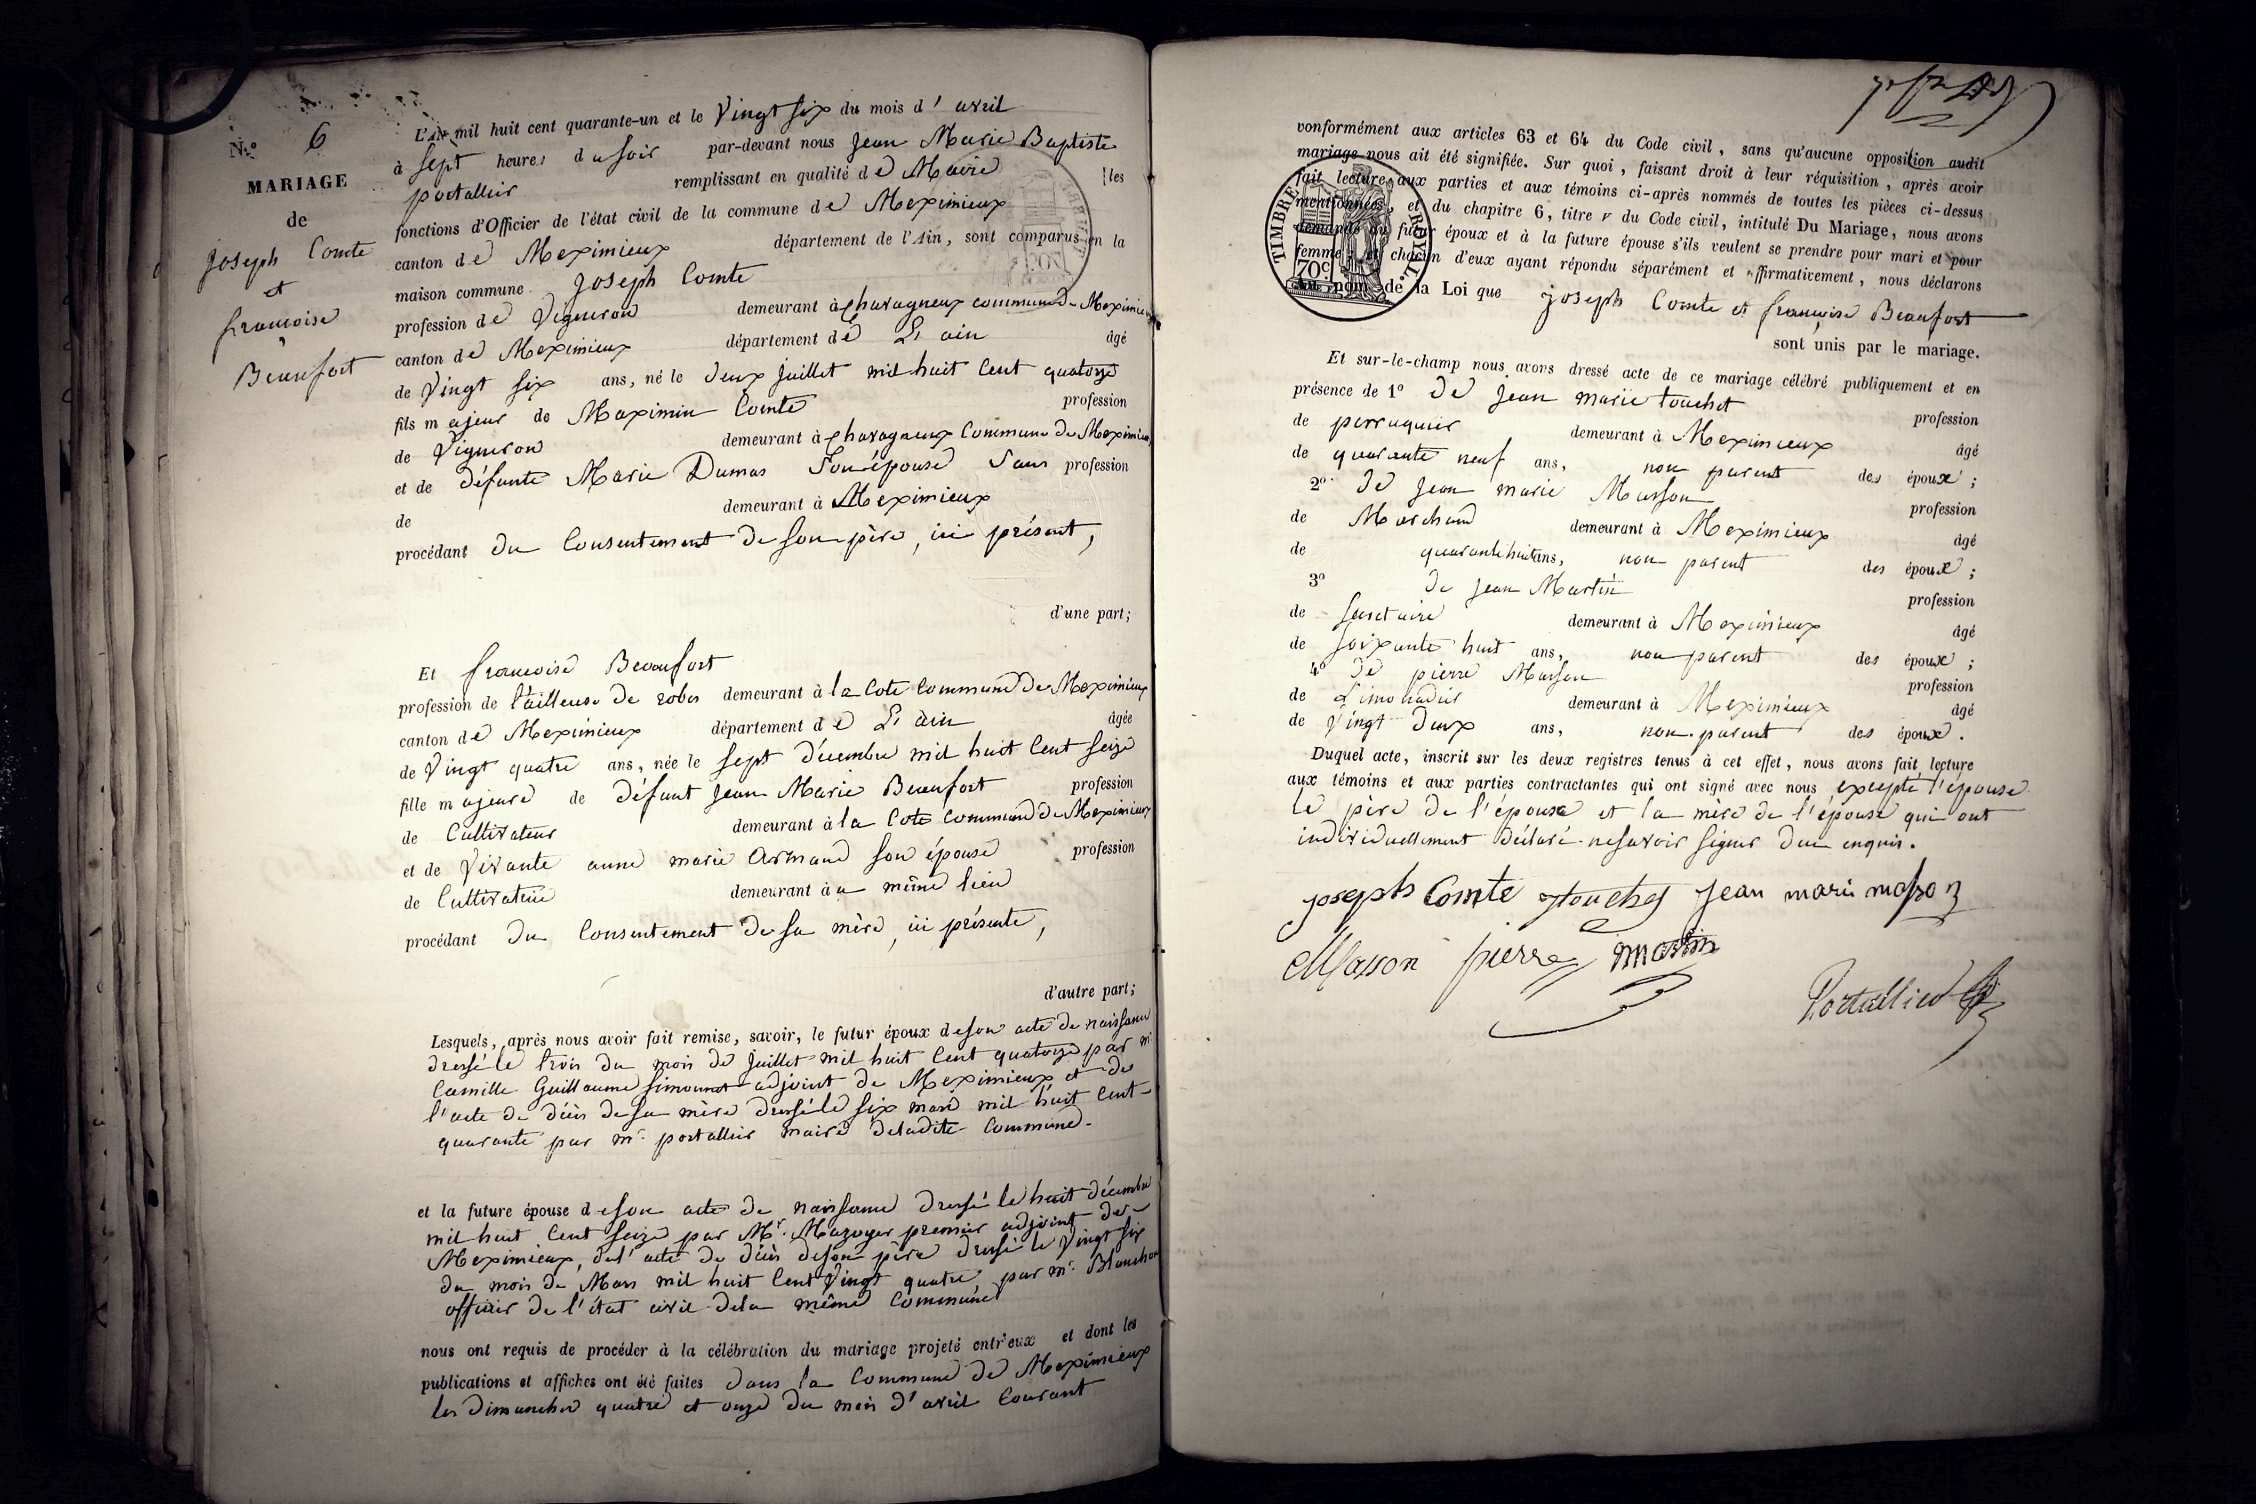 N.º 6
MARIAGE
de
Joseph Comte
et
françoise
Beaufort
L'an mil huit cent quarante-un et le Vingt six du mois d' avril
à sept heures du soir par-devant nous Jean Marie Baptiste
portallier remplissant en qualité de Maire les
fonctions d'Officier de l'état civil de la commune de Meximieux
canton de Meximieux département de l'Ain, sont comparus en la
maison commune Joseph Comte
profession de Vigneron demeurant à Charagneux commune de Meximieux
canton de Meximieux département de L'ain âgé
de Vingt six ans, né le deux Juillet mil huit Cent quatorze
fils majeur de Maximin Comte profession
de Vigneron demeurant à Charagneux Commune de Meximieux
et de défunte Marie Dumas Son épouse Sans profession
de demeurant à Meximieux
procédant du Consentement de son père, ici présent,
d'une part;
Et françoise Beaufort
profession de tailleuse de robes demeurant à la Cote Commune de Meximieux
canton de Meximieux département de L'ain âgée
de Vingt quatre ans, née le sept décembre mil huit Cent seize
fille majeure de défunt Jean Marie Beaufort profession
de Cultivateur demeurant à la Cote Commune de Meximieux
et de Vivante anne marie Armand son épouse profession
de Cultivateur demeurant à u même lieu
procédant du Consentement de sa mère, ici présente,
d'autre part;
Lesquels, après nous avoir fait remise, savoir, le futur époux de son acte de naissance
dressé le trois du mois de Juillet mil huit Cent quatorze par mr
Camille Guillaume Simonnet adjoint de Meximieux et de
l'acte de décès de sa mère dressé le six mars mil huit Cent
quarante par mr. portallier maire de ladite Commune.
et la future épouse de son acte de naissance dressé le huit décembre
mil huit Cent seize par Mr. Mazoyer premier adjoint de
Meximieux, de l'acte de décès de son père dressé le Vingt six
du mois de Mars mil huit Cent Vingt quatre par mr. Blanchon
officier de l'état civil de la même Commune
nous ont requis de procéder à la célébration du mariage projeté entr'eux et dont les
publications et affiches ont été faites dans la Commune de Meximieux
les Dimanches quatre et onze du mois d'avril Courant
conformément aux articles 63 et 64 du Code civil, sans qu'aucune opposition audit
mariage nous ait été signifiée. Sur quoi, faisant droit à leur réquisition, après avoir
fait lecture aux parties et aux témoins ci-après nommés de toutes les pièces ci-dessus
mentionnées, et du chapitre 6, titre v du Code civil, intitulé Du Mariage, nous avons
demandé au futur époux et à la future épouse s'ils veulent se prendre pour mari et pour
femme; et chacun d'eux ayant répondu séparément et affirmativement, nous déclarons
au nom de la Loi que Joseph Comte et françoise Beaufort
sont unis par le mariage.
TIMBRE ROYAL
70c
Et sur-le-champ nous avons dressé acte de ce mariage célébré publiquement et en
présence de 1º De Jean marie touchet profession
de perruquier demeurant à Meximieux âgé
de quarante neuf ans, non parent des époux;
2º De Jean marie Masson profession
de Marchand demeurant à Meximieux âgé
de quarante huit ans, non parent des époux;
3º De Jean Martin profession
de demeurant à Meximieux âgé
de soixante huit ans, non parent des époux;
4º De pierre Masson profession
de Limonadier demeurant à Meximieux âgé
de Vingt deux ans, non parent des époux.
Duquel acte, inscrit sur les deux registres tenus à cet effet, nous avons fait lecture
aux témoins et aux parties contractantes qui ont signé avec nous excepté l'épouse
le père de l'épouse et la mère de l'épouse qui ont
individuellement déclaré ne savoir signer Due enquis.
joseph Comte touchet Jean marie masson
Masson pierre martin
Portallier